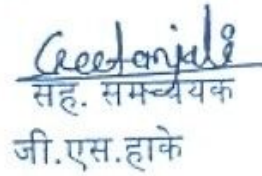 Geetanjali
सह. समन्वयक
जी.एस.हाके